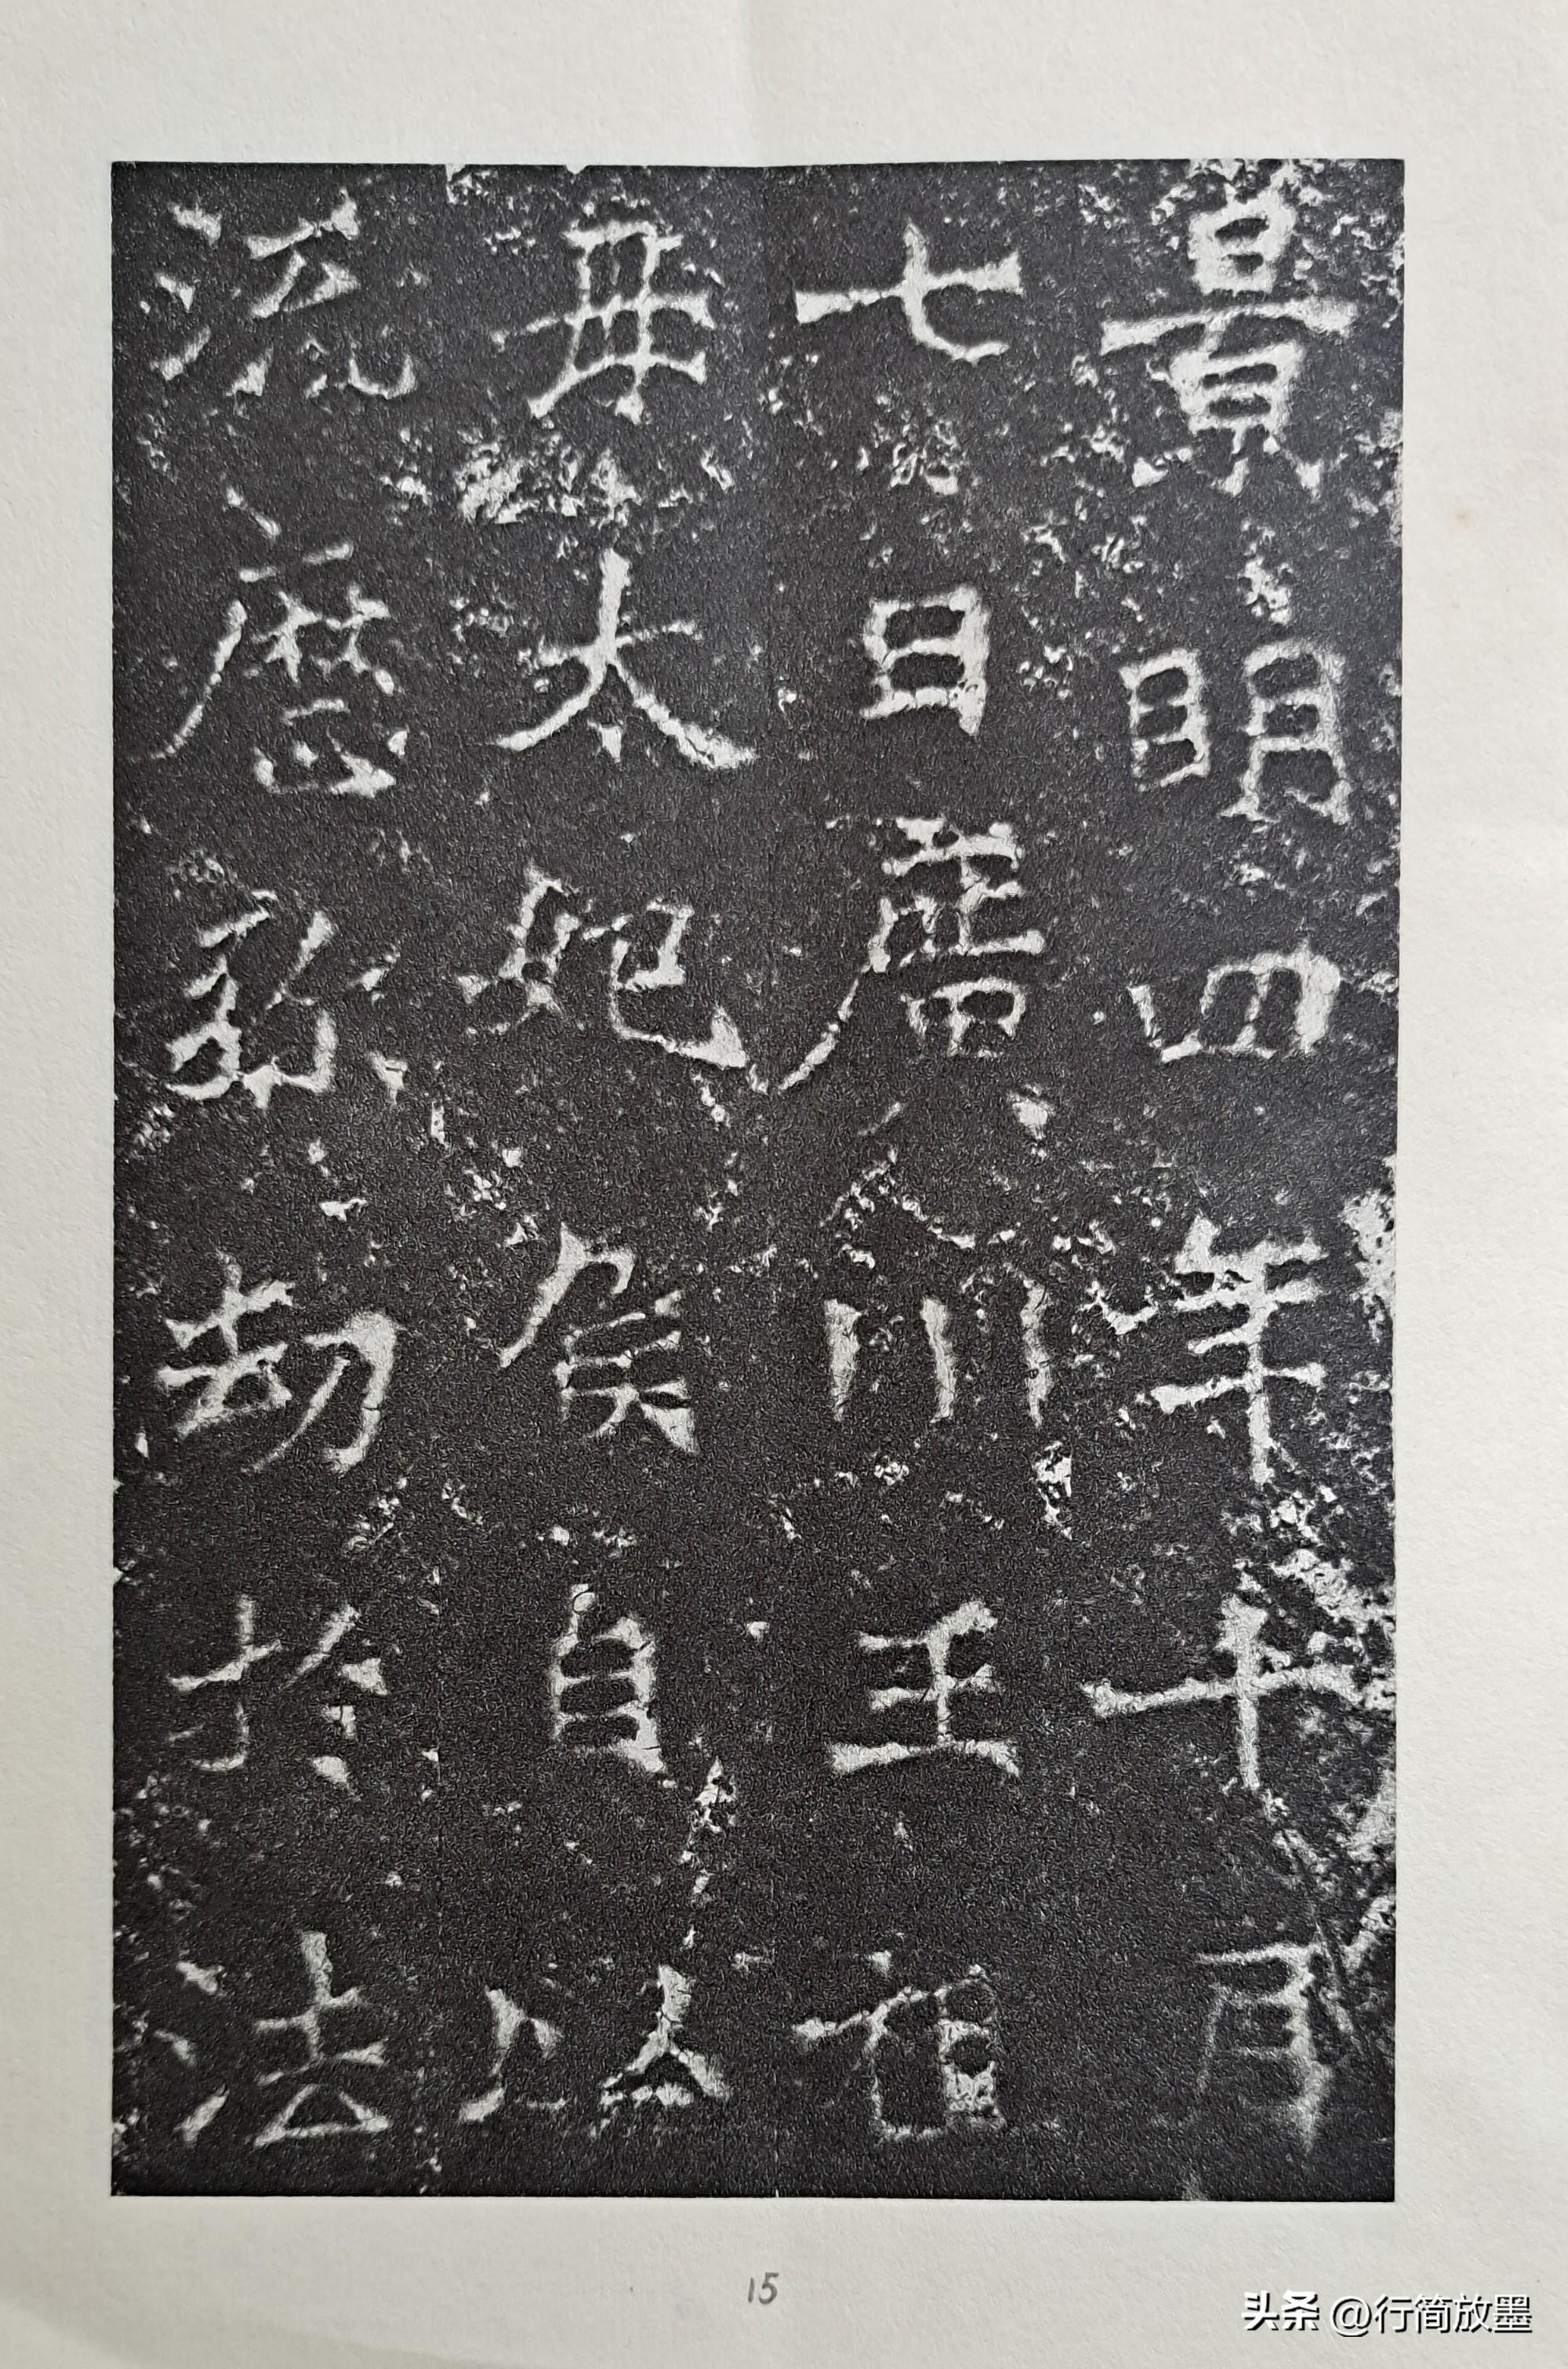 景明四年十月
七日廣川王祖
母太妃侯自以
流歷弥劫於法
15
头条 @行简放墨